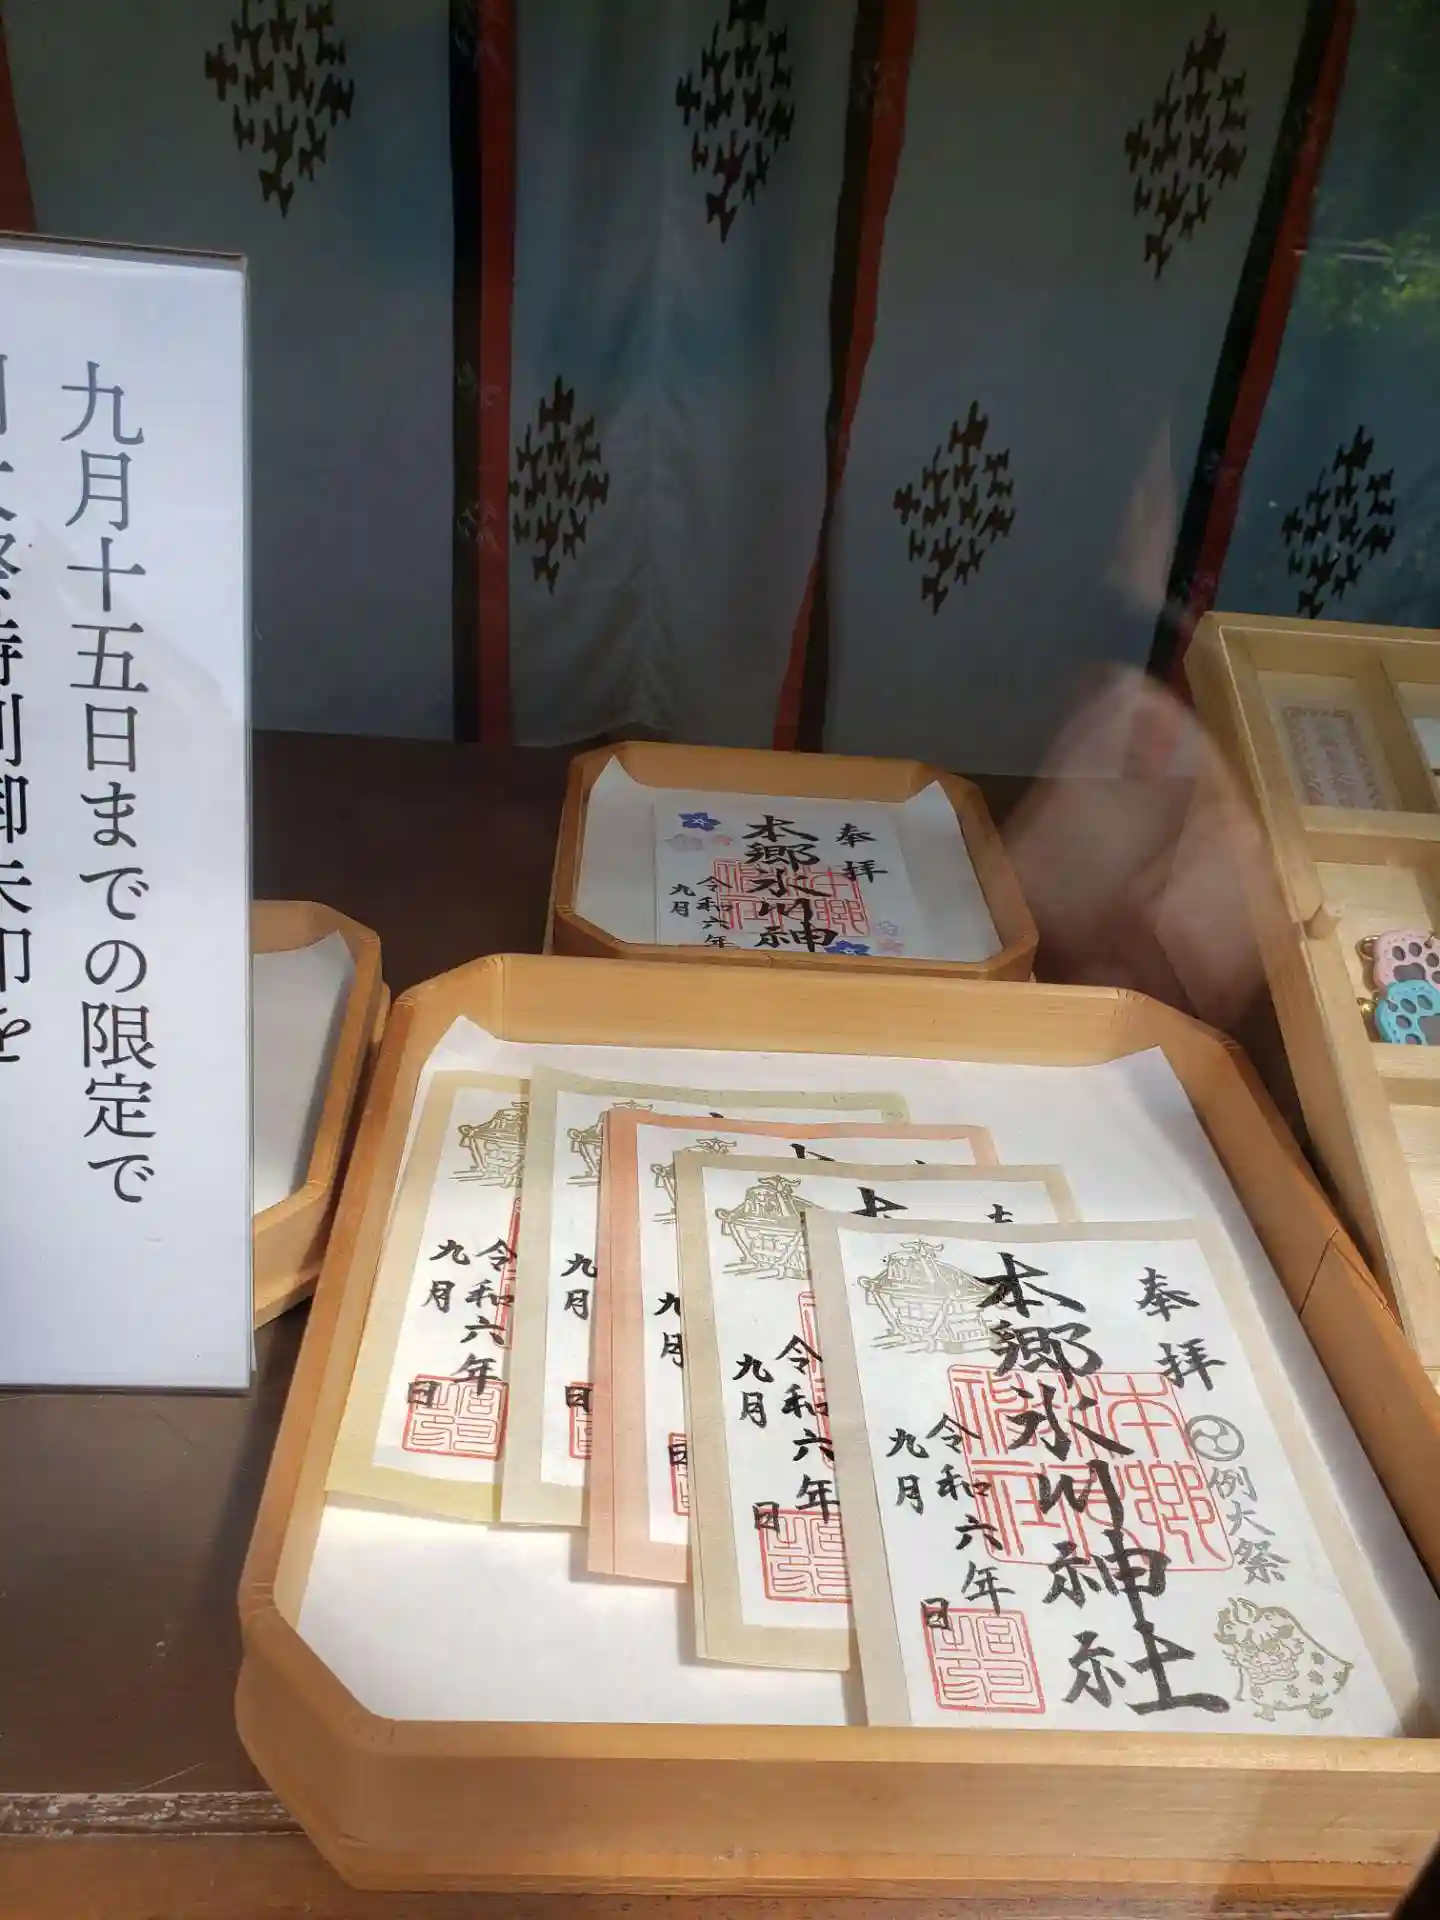 九月十五日までの限定で
例大祭特別御朱印を
奉拝
本郷氷川神
令和六年
九月
奉拝
例大祭
本郷氷川神社
令和六年
九月
日
令和六年
九月
日
九月
日
九月
日
令和六年
九月
日